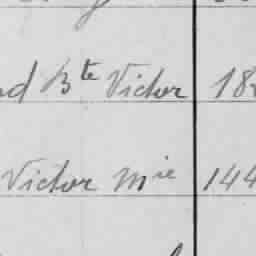 nd Bte Victor 18
Victor Mie 144